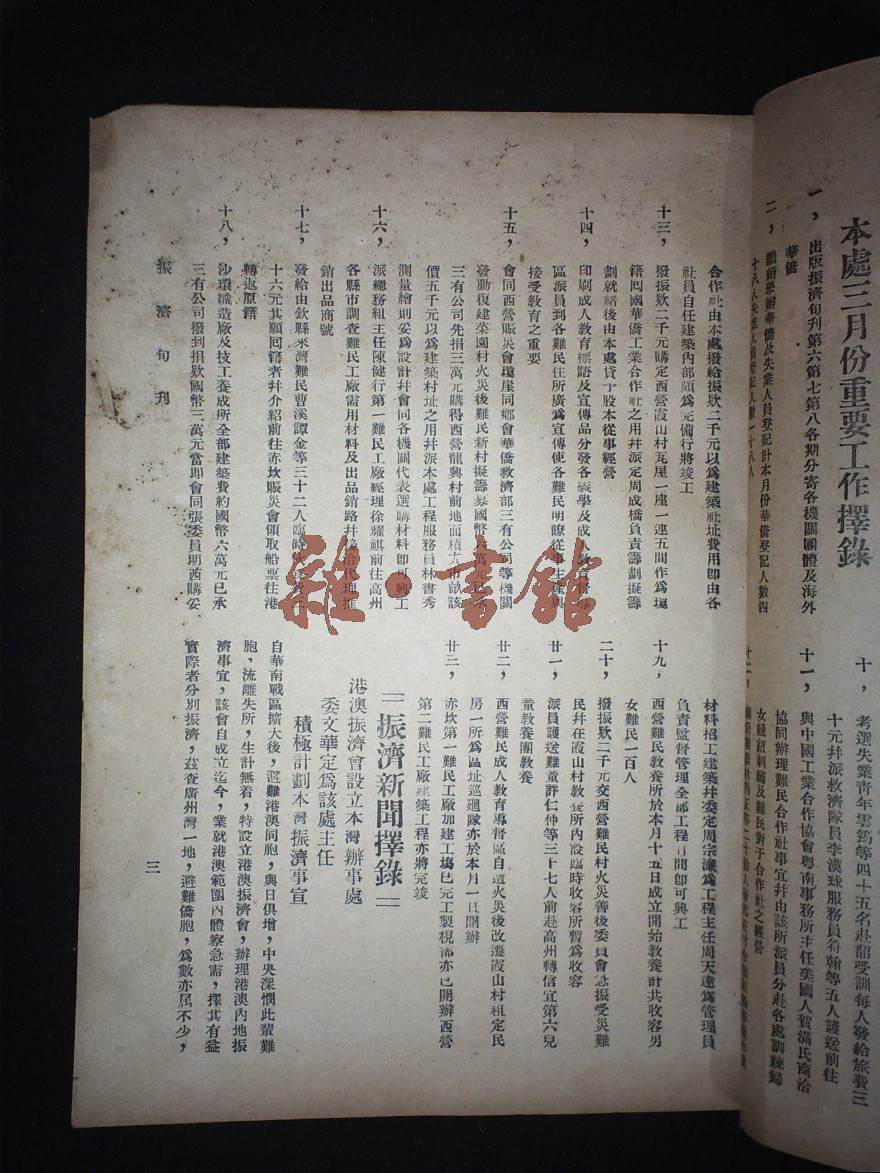 本處三月份重要工作擇錄
一，出版振濟旬刊第六第七第八各期分寄各機關團體及海外
華僑
二，繼續舉辦華僑及失業人員登記計本月份華僑登記人數四
十，考選失業青年雲筠等四十五名赴韶受訓每人發給旅費三
十元并派救濟隊員李漢球服務員翰等五人護送前往
十一，與中國工業合作協會粵南事務所主任美國人賀滿氏商洽
協同辦理難民合作社事宜并由該所派員分赴各處訓練婦
女縫紉刺繡及難民對于合作社之經營
十二，
合作社由本處撥給振款二千元以為建築社址費用卽由各
社員自任建築內部頗為完備行將竣工
十三，撥振款二千元購定西營霞山村瓦屋一座一連五間作為瓊
籍囘國華僑工業合作社之用并派定周成橋負責籌劃擬籌
劃就緒後由本處貸予股本從事經營
十四，印刷成人教育標語及宣傳品分發各義學及成人教育督導
區派員到各難民住所廣為宣傳使各難民明瞭從事生產與
接受教育之重要
十五，會同西營賑災會瓊崖同鄉會華僑救濟部三有公司等機關
發動復建菉園村火災後難民新村擬籌募國幣萬元已承
三有公司先捐三萬元購得西營龍興村前地面積大市畝該
價五千元以為建築村址之用幷派本處工程服務員林書秀
測量繪則妥為設計幷會同各機關代表選購材料卽興工
十六，派總務組主任陳健行第一難民工廠經理徐耀祺前往高州
各縣市調查難民工廠需用材料及出品銷路幷接洽代理推
銷出品商號
十七，發給由欽縣來灣難民曹溪譚金等三十二人臨時費三
十六元其願回籍者幷介紹前往赤坎賑災會領取船票往港
轉返原籍
十八，沙環織造廠及技工養成所全部建築費約國幣六萬元已承
三有公司撥到捐款國幣三萬元當卽會同張委員明西購妥
材料招工建築幷委定周宗濂為工程主任周天達為管理員
負責監督管理全部工程日間卽可興工
十九，西營難民教養所於本月十五日成立開始教養計共收容男
女難民一百人
二十，撥振款二千元交西營難民村火災善後委員會急振受災難
民幷在霞山村教養所內設臨時收容所暫為收容
廿一，派員護送難童許仁仲等三十七人前赴高州轉信宜第六兒
童教養團教養
廿二，西營難民成人教育導督區自遭火災後改遷霞山村租定民
房一所為區址巡廻隊亦於本月一日開辦
廿三，赤坎第一難民工廠加建工塲已完工製梘部亦已開辦西營
第二難民工廠建築工程亦將完竣
振濟新聞擇錄
港澳振濟會設立本灣辦事處
委文華定為該處主任
積極計劃本灣振濟事宣
自華南戰區擴大後，避難港澳同胞，與日俱增，中央深憫此輩難
胞，流離失所，生計無着，特設立港澳振濟會，辦理港澳內地振
濟事宜，該會自成立迄今，業就港澳範圍內體察急需，擇其有益
實際者分別振濟，茲查廣州灣一地，避難僑胞，為數亦属不少，
振濟旬刊
三
雜·書館